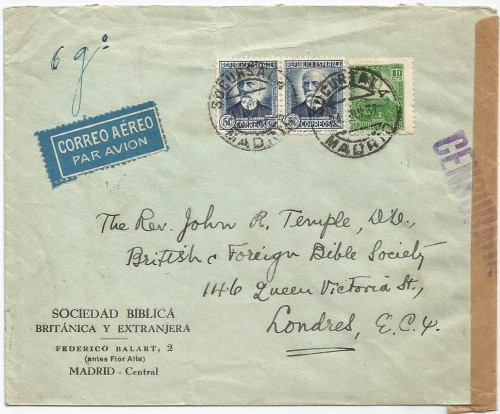 6 gº
REPUBLICA ESPAÑOLA REPUBLICA ESPAÑOLA
CORREOS CORREOS
10
SUCURSAL 4
MADRID
MADRID
CORREO AÉREO
PAR AVION
The Rev. John R. Temple,
British & Foreign Bible Society
146 Queen Victoria St.,
Londres, E.C.4.
SOCIEDAD BÍBLICA
BRITÁNICA Y EXTRANJERA
FEDERICO BALART, 2
(antes Flor Alta)
MADRID - Central